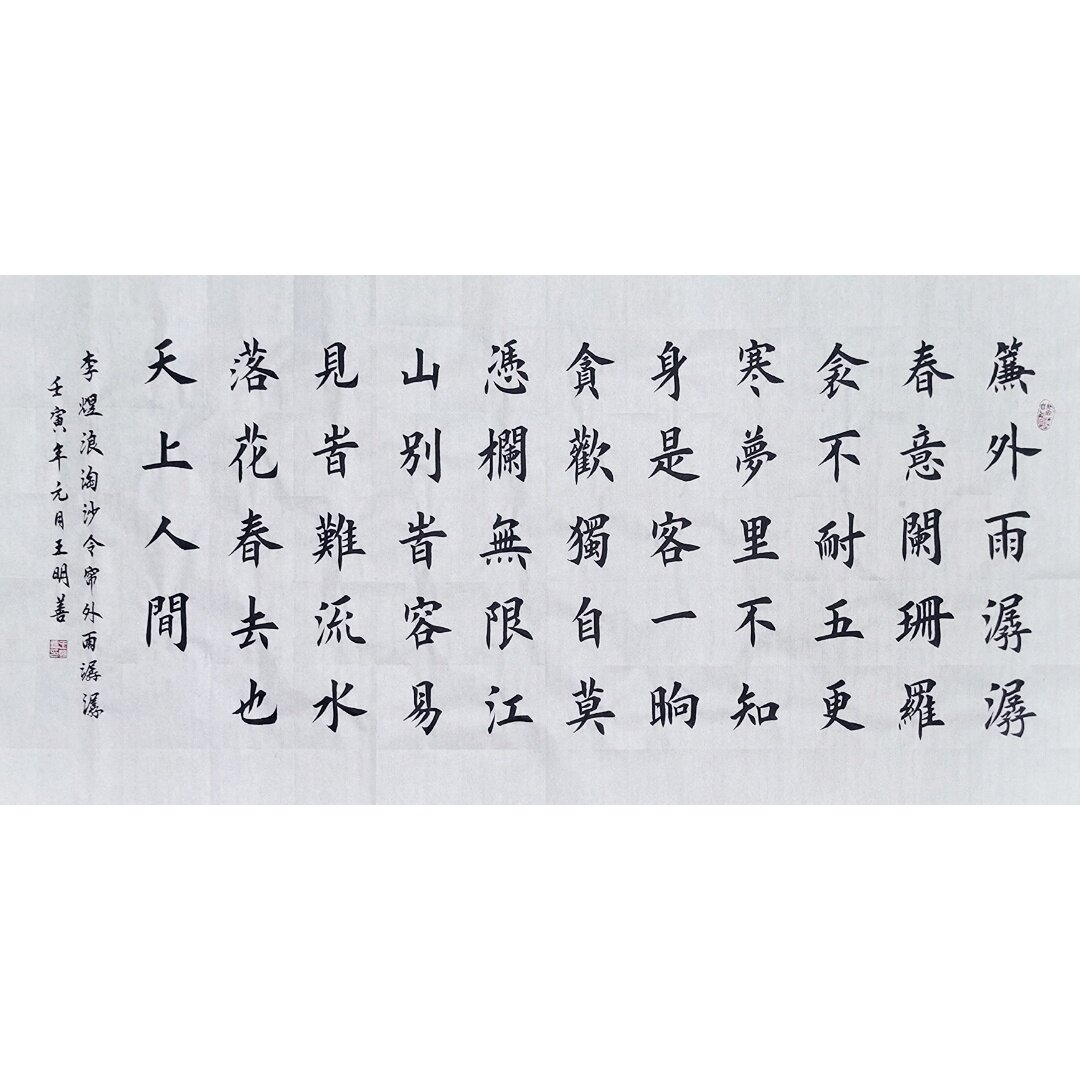 簾外雨潺潺
春意闌珊羅
衾不耐五更
寒夢里不知
身是客一晌
貪歡獨自莫
憑欄無限江
山別旹容易
見旹難流水
落花春去也
天上人間
李煜浪淘沙令帘外雨潺潺
壬寅年元月王明善